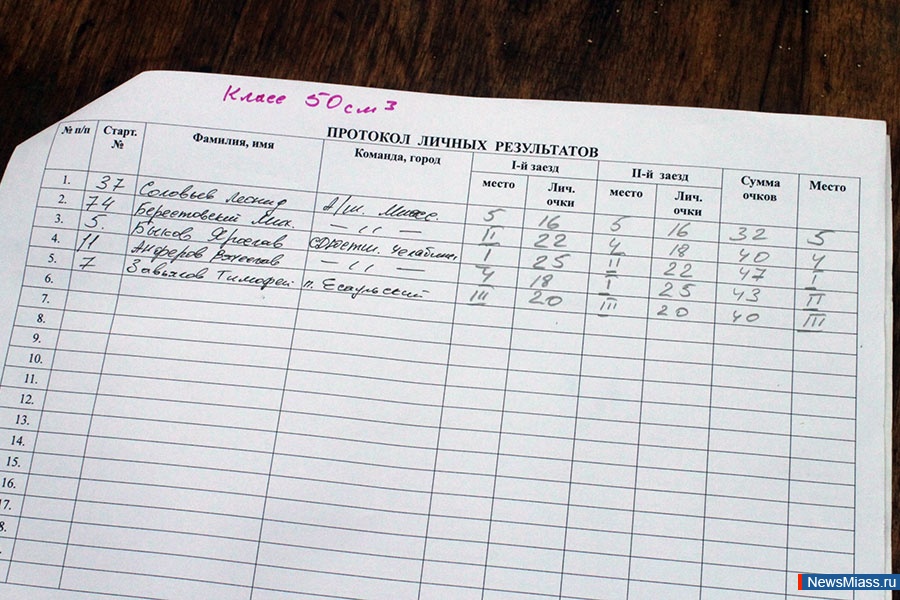 Класс 50 см³
ПРОТОКОЛ ЛИЧНЫХ РЕЗУЛЬТАТОВ
№ п/п Старт. № Фамилия, имя Команда, город I-й заезд II-й заезд Сумма очков Место
место Лич. очки место Лич. очки
1. 37 Соловьев Леонид Миасс 5 16 5 16 32 5
2. 74 Берестовский Мих. — " — II 22 4 18 40 4
3. 5. Быков Ярослав Челябинс. I 25 II 22 47 I
4. 11 Анферов Вячеслав — " — 4 18 I 25 43 II
5. 7 Завьялов Тимофей п. Есаульский III 20 III 20 40 III
6.
7.
8.
9.
10.
11.
12.
13.
14.
15.
16.
17.
8.
NewsMiass.ru